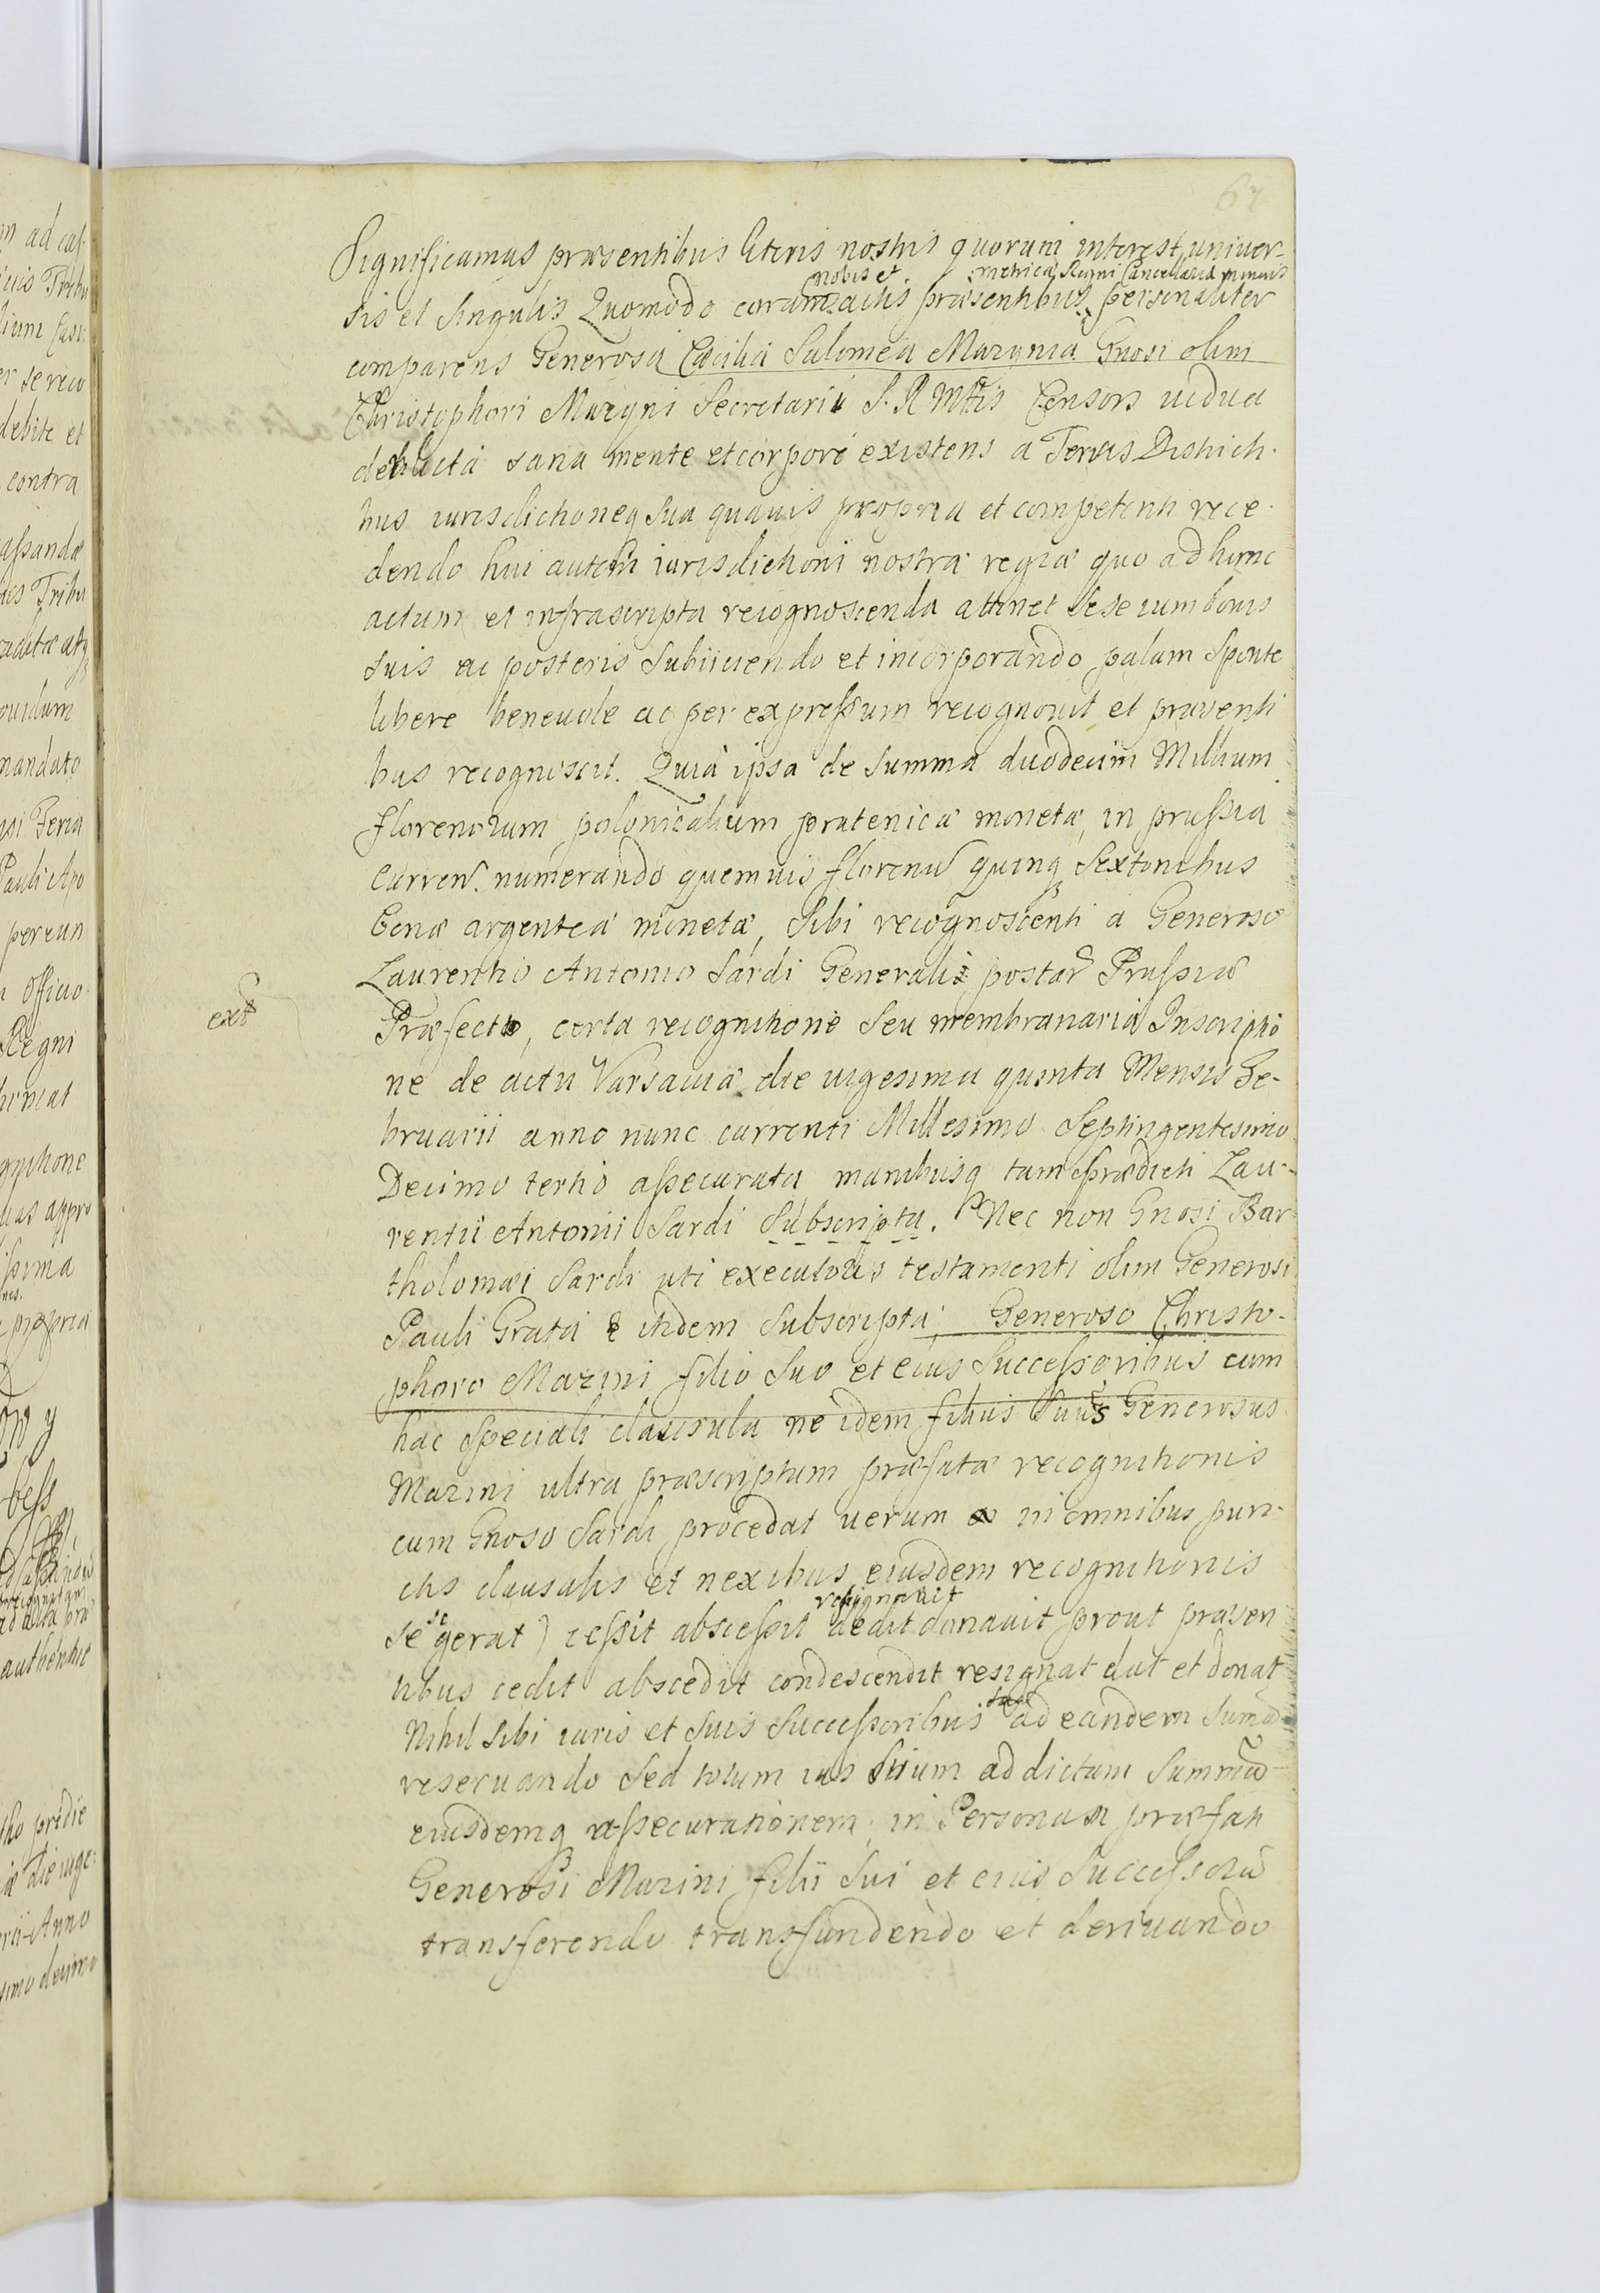 67
Significamus præsentibus literis nostris quorum interest, univer-
sis et singulis Quomodo coram nobis et actis præsentibus metrices Regni Cancellariæ minoris personaliter
comparens Generosa Cæcilia Salomea Mazynia Gnosi olim
Christophori Mazyni Secretarii S. R. Mttis Consors uidua
derelicta sana mente et corpore existens a Terris Districti-
bus iurisdictioneq sua quauis propria et competenti rece-
dendo hui autem iurisdictioni nostræ regiæ quo ad hunc
actum et infrascripta recognoscenda attinet sese cum bonis
suis ac posteris subiiciendo et incorporando palam sponte
libere beneuole ac per expressum recognouit et præsenti
bus recognoscit. Quia ipsa de summa duodecim Millium
florenorum polonicalium prutenicæ monetæ, in prussia
Curren. numerando quemuis florenu quinq sextonibus
bonæ argenteæ monetæ, sibi recognoscenti a Generoso
Laurentio Antonio Sardi Generali postar Prussiæ
ext
Præfecto, certa recognitione seu membranaria Inscriptio
ne de actu Varsauiæ die uigesima quinta Mensis Fe-
bruarii anno nunc currenti Millesimo Septingentesimo
Decimo tertio assecurata manibusq tam prædicti Lau-
rentii Antonii Sardi subscripta. Nec non Gnosi Bar
tholomæi Sardi uti executoris testamenti olim Generosi
Pauli Grata itidem subscripta, Generoso Christo-
phoro Mazini filio suo et eius Successoribus cum
hac speciali clausula ne idem filius suus Generosus
Mazini ultra præscriptum præfatæ recognitionis
cum Gnoso Sardi procedat uerum in omnibus pun-
ctis clausulis et nexibus eiusdem recognitionis
se gerat) cessit abscessit resignauit dedit donauit prout præsen
tibus cedit abscedit condescendit resignat dat et donat
Nihil sibi iuris et suis Successoribus ad eandem summa
reseruando sed totum ius suum ad dictam summa
eiusdemq assecurationem, in Persona præfati
Generosi Mazini filii sui et eius Successoru
transferendo transfundendo et deriuando